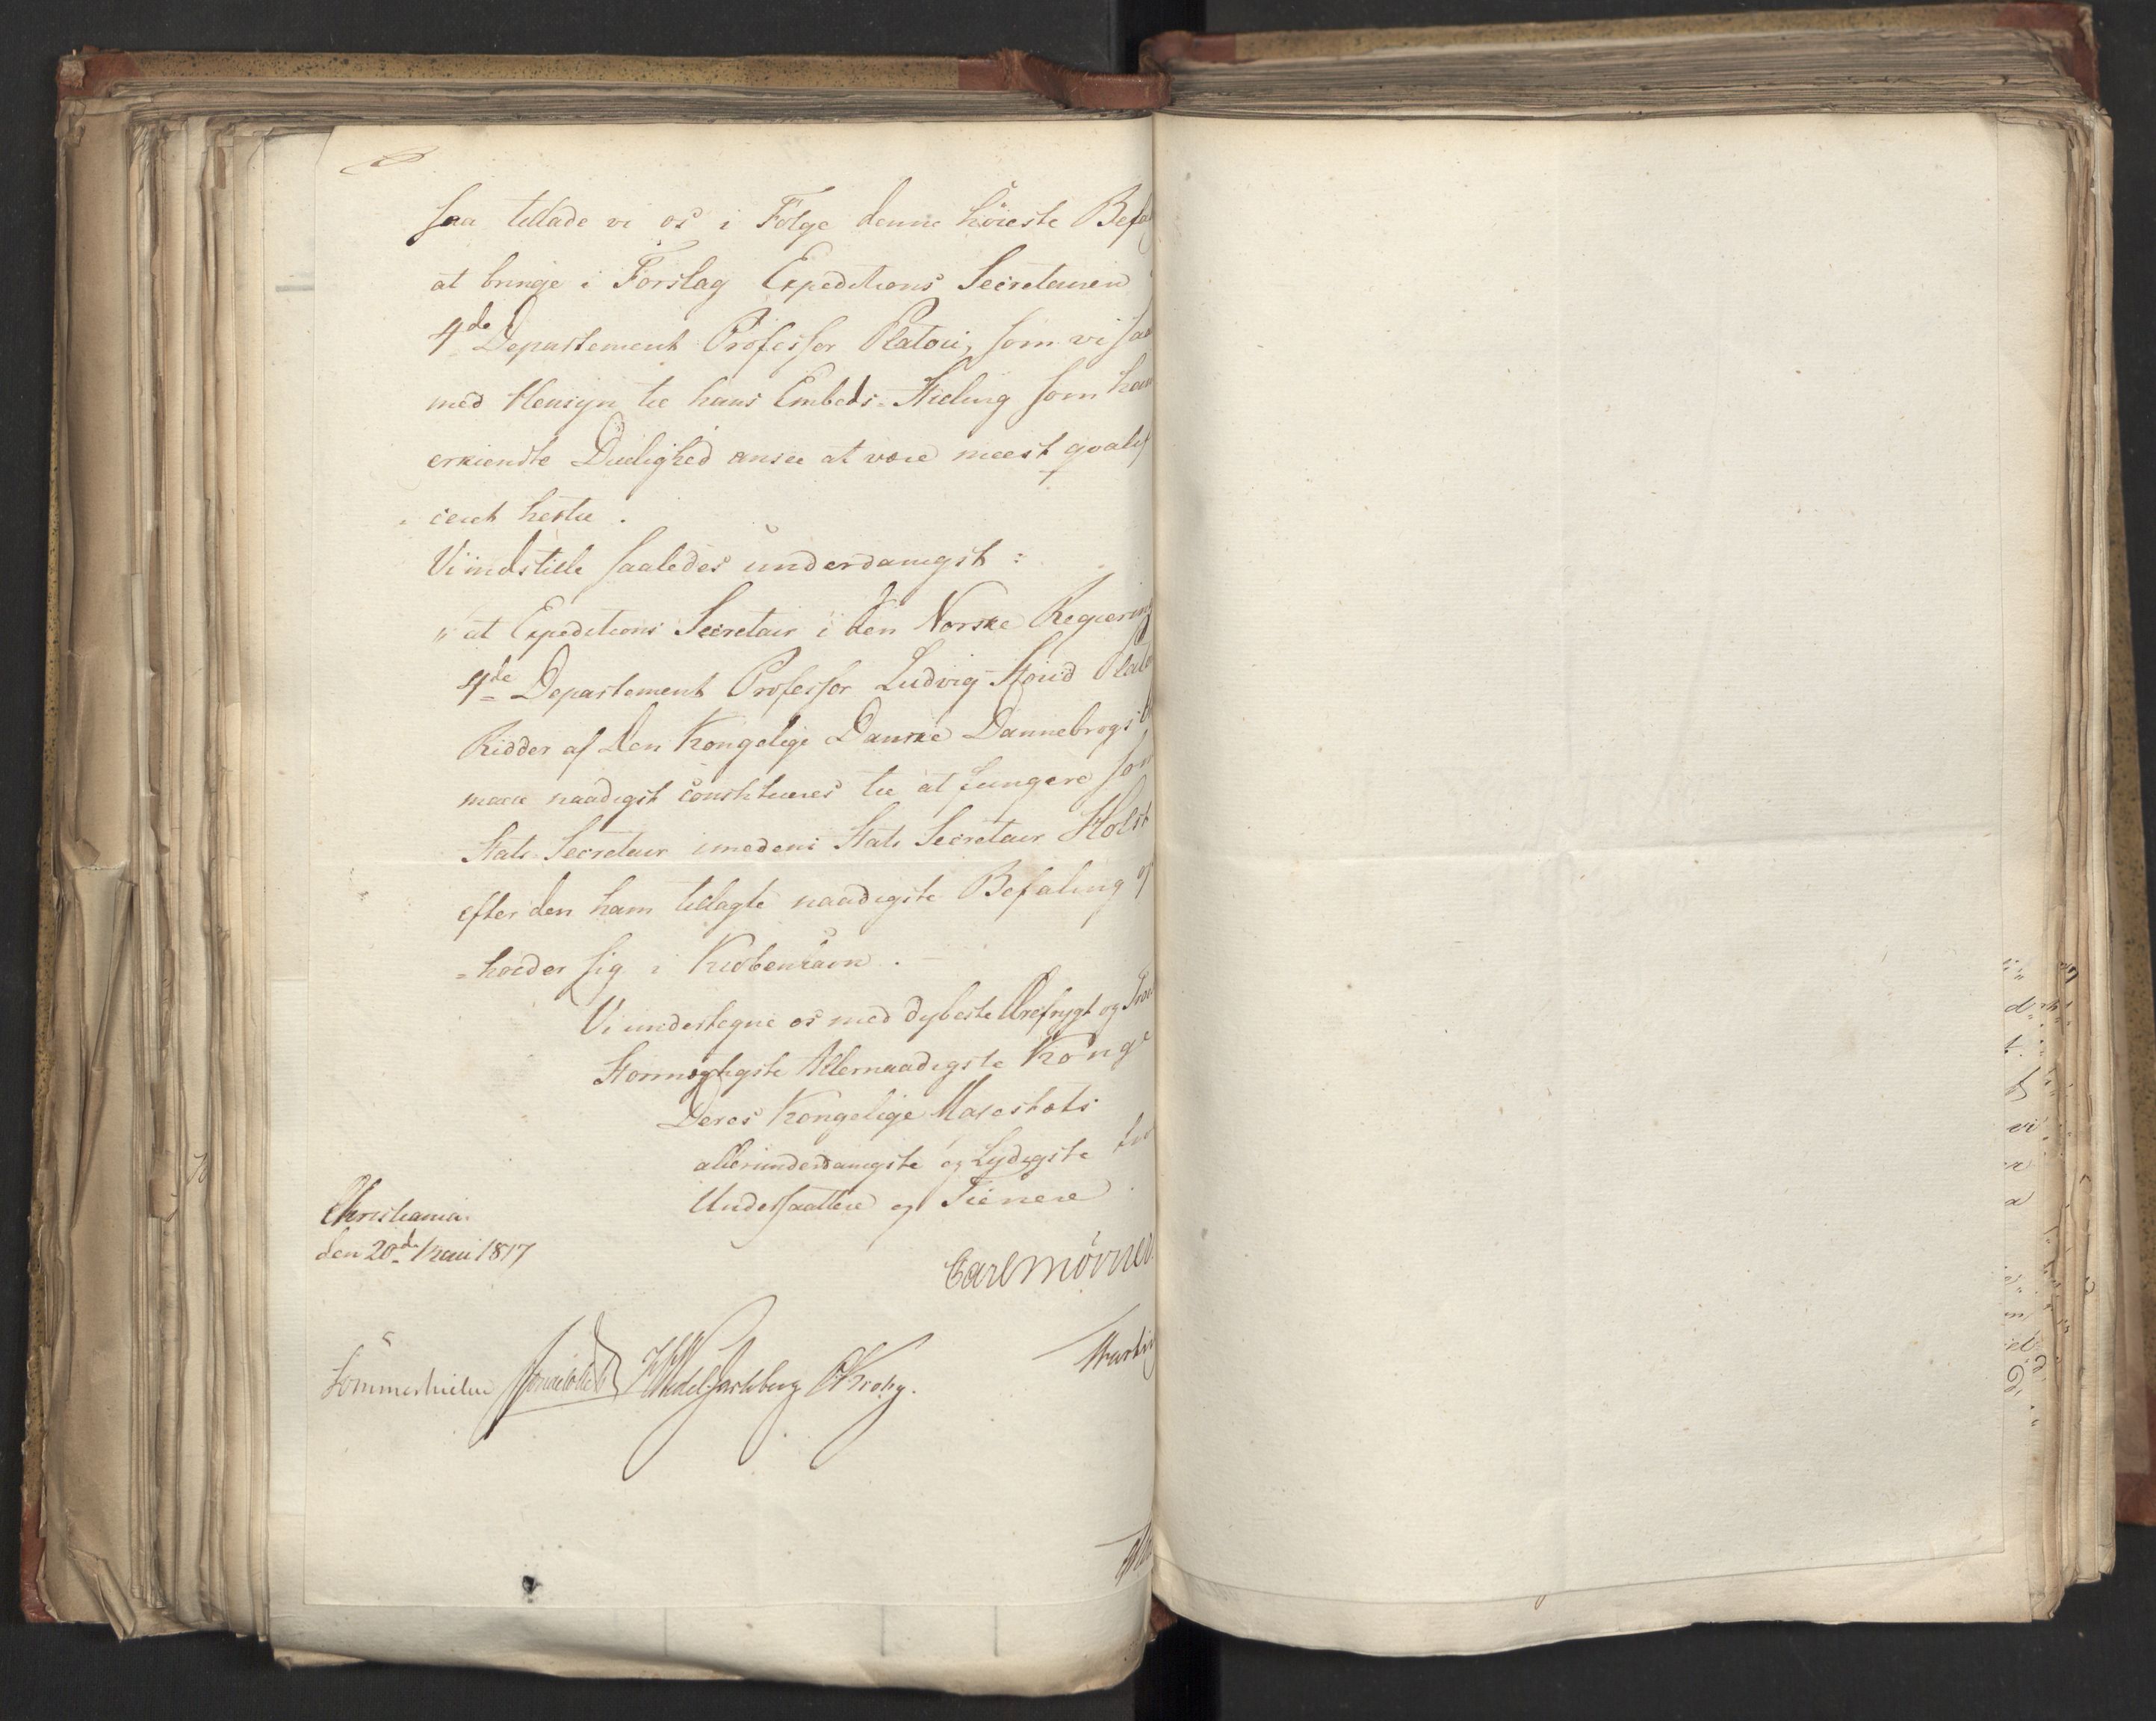 saa tillade vi os i Følge denne høieste Befa
at bringe i Forslag Expeditions Secretairen
4de Departement Professor Platou, som vi saa
med Hensyn til hans Embeds-Stilling som han
erkiendte Duelighed ansee at være meest qvalif
ceret hertil.
Vi indstille saaledes underdanigst:
"at Expeditions Secretair i den Norske Regiering
4de Departement Professor Ludvig Stoud Plato
Ridder af den Kongelige Danske Dannebrogs
maa naadigst constitueres til at fungere som
Stats-Secretair imedens Stats Secretair Holst
efter den ham tillagte naadigste Befaling op
=holder sig i Kiøbenhavn.
Vi undertegne os med dybeste Ærefrygt og Tros
Stormægtigste Allernaadigste Konge
Deres Kongelige Majestæts
allerunderdanigste og Lydigste tro
Undersaattere og Tienere
Christiania
den 20de Mai 1817
Carl Mörner
Sommerhielm HWedel Jarlsberg OKrohg.